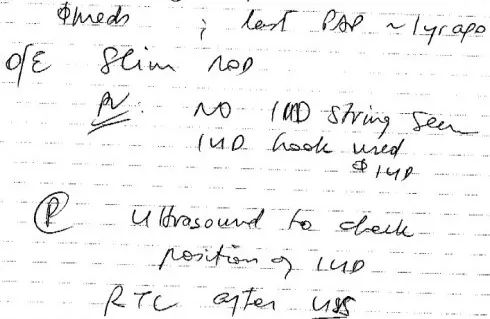 ∅meds ; last PAP ~1yr ago
O/E Slim NOD
PV. NO IUD string seen
IUD hook used
∅ IUD
Ⓟ Ultrasound to check
position of IUD
RTC after USS